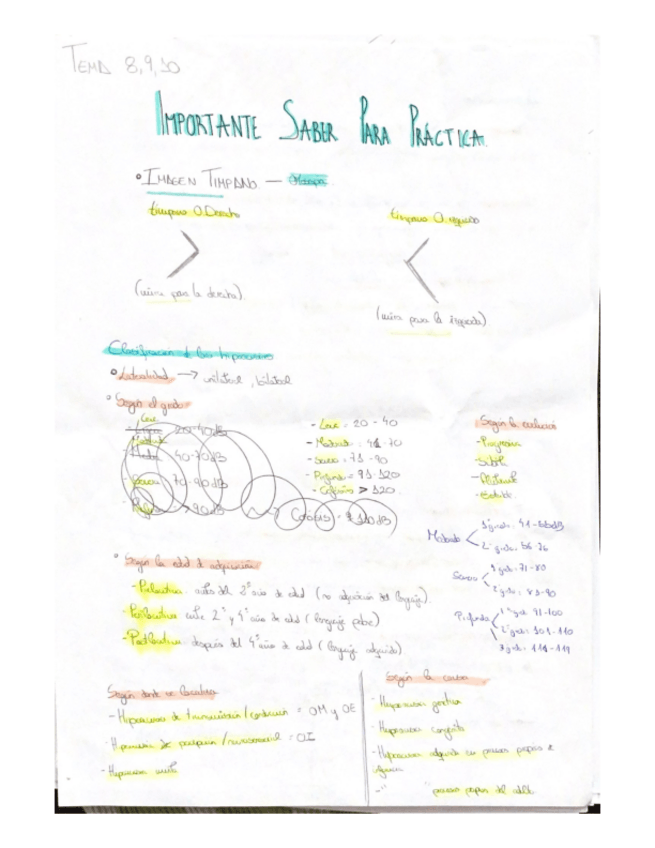 TEMA 8,9,10
IMPORTANTE SABER PARA PRÁCTICA.
IMAGEN TIMPANO —
tímpano O.Derecho
tímpano O. izquierdo
(mira para la derecha)
(mira para la izquierda)
Clasificación de las hipoacusias
Lateralidad → unilateral, bilateral
Según el grado
Leve
20-40dB
40-70dB
70-90dB
>90dB
Cofosis =
- Leve = 20 - 40
- Moderada = 41-70
- Severa = 71-90
- Profunda = 91-120
- Cofosis > 120
Según la evolución
- Progresiva
- Súbita
- Fluctuante
- Estable
Moderado
1º grado: 41-
2º grado: 56-70
Severa
1º grado: 71-80
2º grado: 81-90
Profunda
1º grado 91-100
2º grado: 101-110
3º grado: 111-119
Según la edad de adquisición
- Prelocutiva antes del 2º año de edad (no adquisición del lenguaje)
- Perilocutiva entre 2º y 4º año de edad (lenguaje pobre)
- Postlocutiva después del 4º año de edad (lenguaje adquirido)
Según donde se localiza
- Hipoacusia de transmisión/conducción = OM y OE
- Hipoacusia de percepción/neurosensorial = OI
- Hipoacusia mixta
Según la causa
- Hipoacusia genética
- Hipoacusia congénita
- Hipoacusia adquirida en procesos propios de
- " " procesos propios del adulto